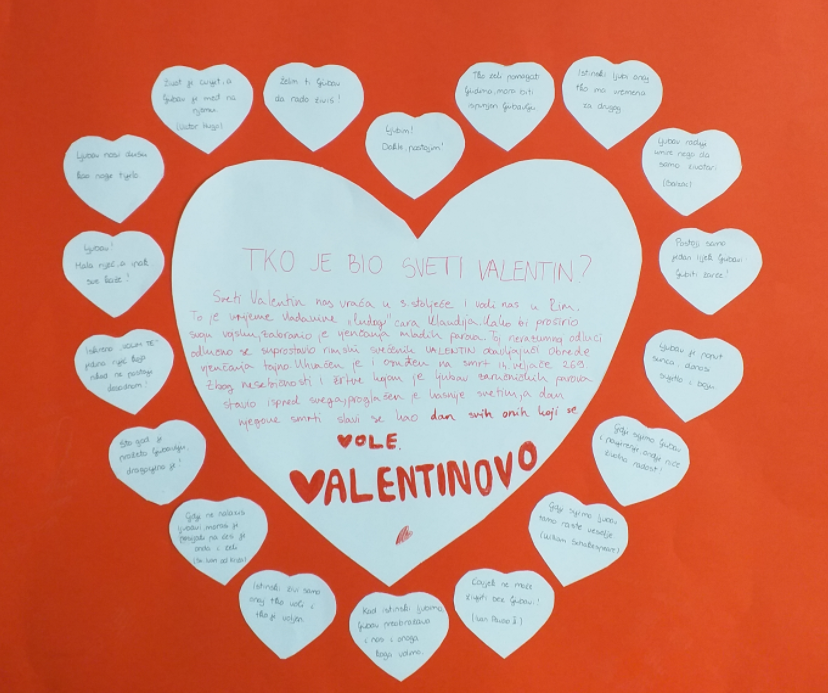 Život je cvijet, a
ljubav je med na
njemu.
(Victor Hugo)
Želim ti ljubav
da rado živiš!
Ljubim!
Dakle postojim!
Tko želi pomagati
ljudima, mora biti
ispunjen ljubavlju
Istinski ljubi onaj
tko ima vremena
za drugog
Ljubav nosi dušu
kao noge tijelo
Ljubav radije
umire nego da
samo životari
(Balzac)
Ljubav!
Mala riječ, a ipak
sve kaže!
Postoji samo
jedan lijek ljubavi
ljubiti žarče!
Iskreno "VOLIM TE"
jedina riječ koja
nikad ne postaje
dosadnom!
Ljubav je poput
sunca, donosi
svjetlo i boju.
Što god je
prožeto ljubavlju,
dragocjeno je!
Gdje sijemo ljubav
i povjerenje, ondje niče
životna radost!
Gdje ne nalaziš
ljubavi, moraš je
posijati pa ćeš je
onda i
(Sv. Ivan od Križa)
Gdje sijemo ljubav
tamo raste veselje
(William Schakespeare)
Istinski živi samo
onaj tko voli i
tko je voljen.
Kad istinski ljubimo,
ljubav preobražava
i nas i onoga
koga volimo.
Čovjek ne može
živjeti bez ljubavi!
(Ivan Pavao II)
TKO JE BIO SVETI VALENTIN?
Sveti Valentin nas vraća u 3. stoljeće i vodi nas u Rim.
To je vrijeme vladavine "ludog" cara Klaudija. Kako bi proširio
svoju vojsku, zabranio je vjenčanja mladih parova. Toj nerazumnoj odluci
odlučno se suprotstavio rimski svećenik VALENTIN obavljajući obrede
vjenčanja tajno. Uhvaćen je i osuđen na smrt 14. veljače 269
Zbog nesebičnosti i žrtve kojom je ljubav zaručničkih parova
stavio ispred svega, proglašen je kasnije svetim, a dan
njegove smrti slavi se kao dan svih onih koji se
VOLE.
VALENTINOVO